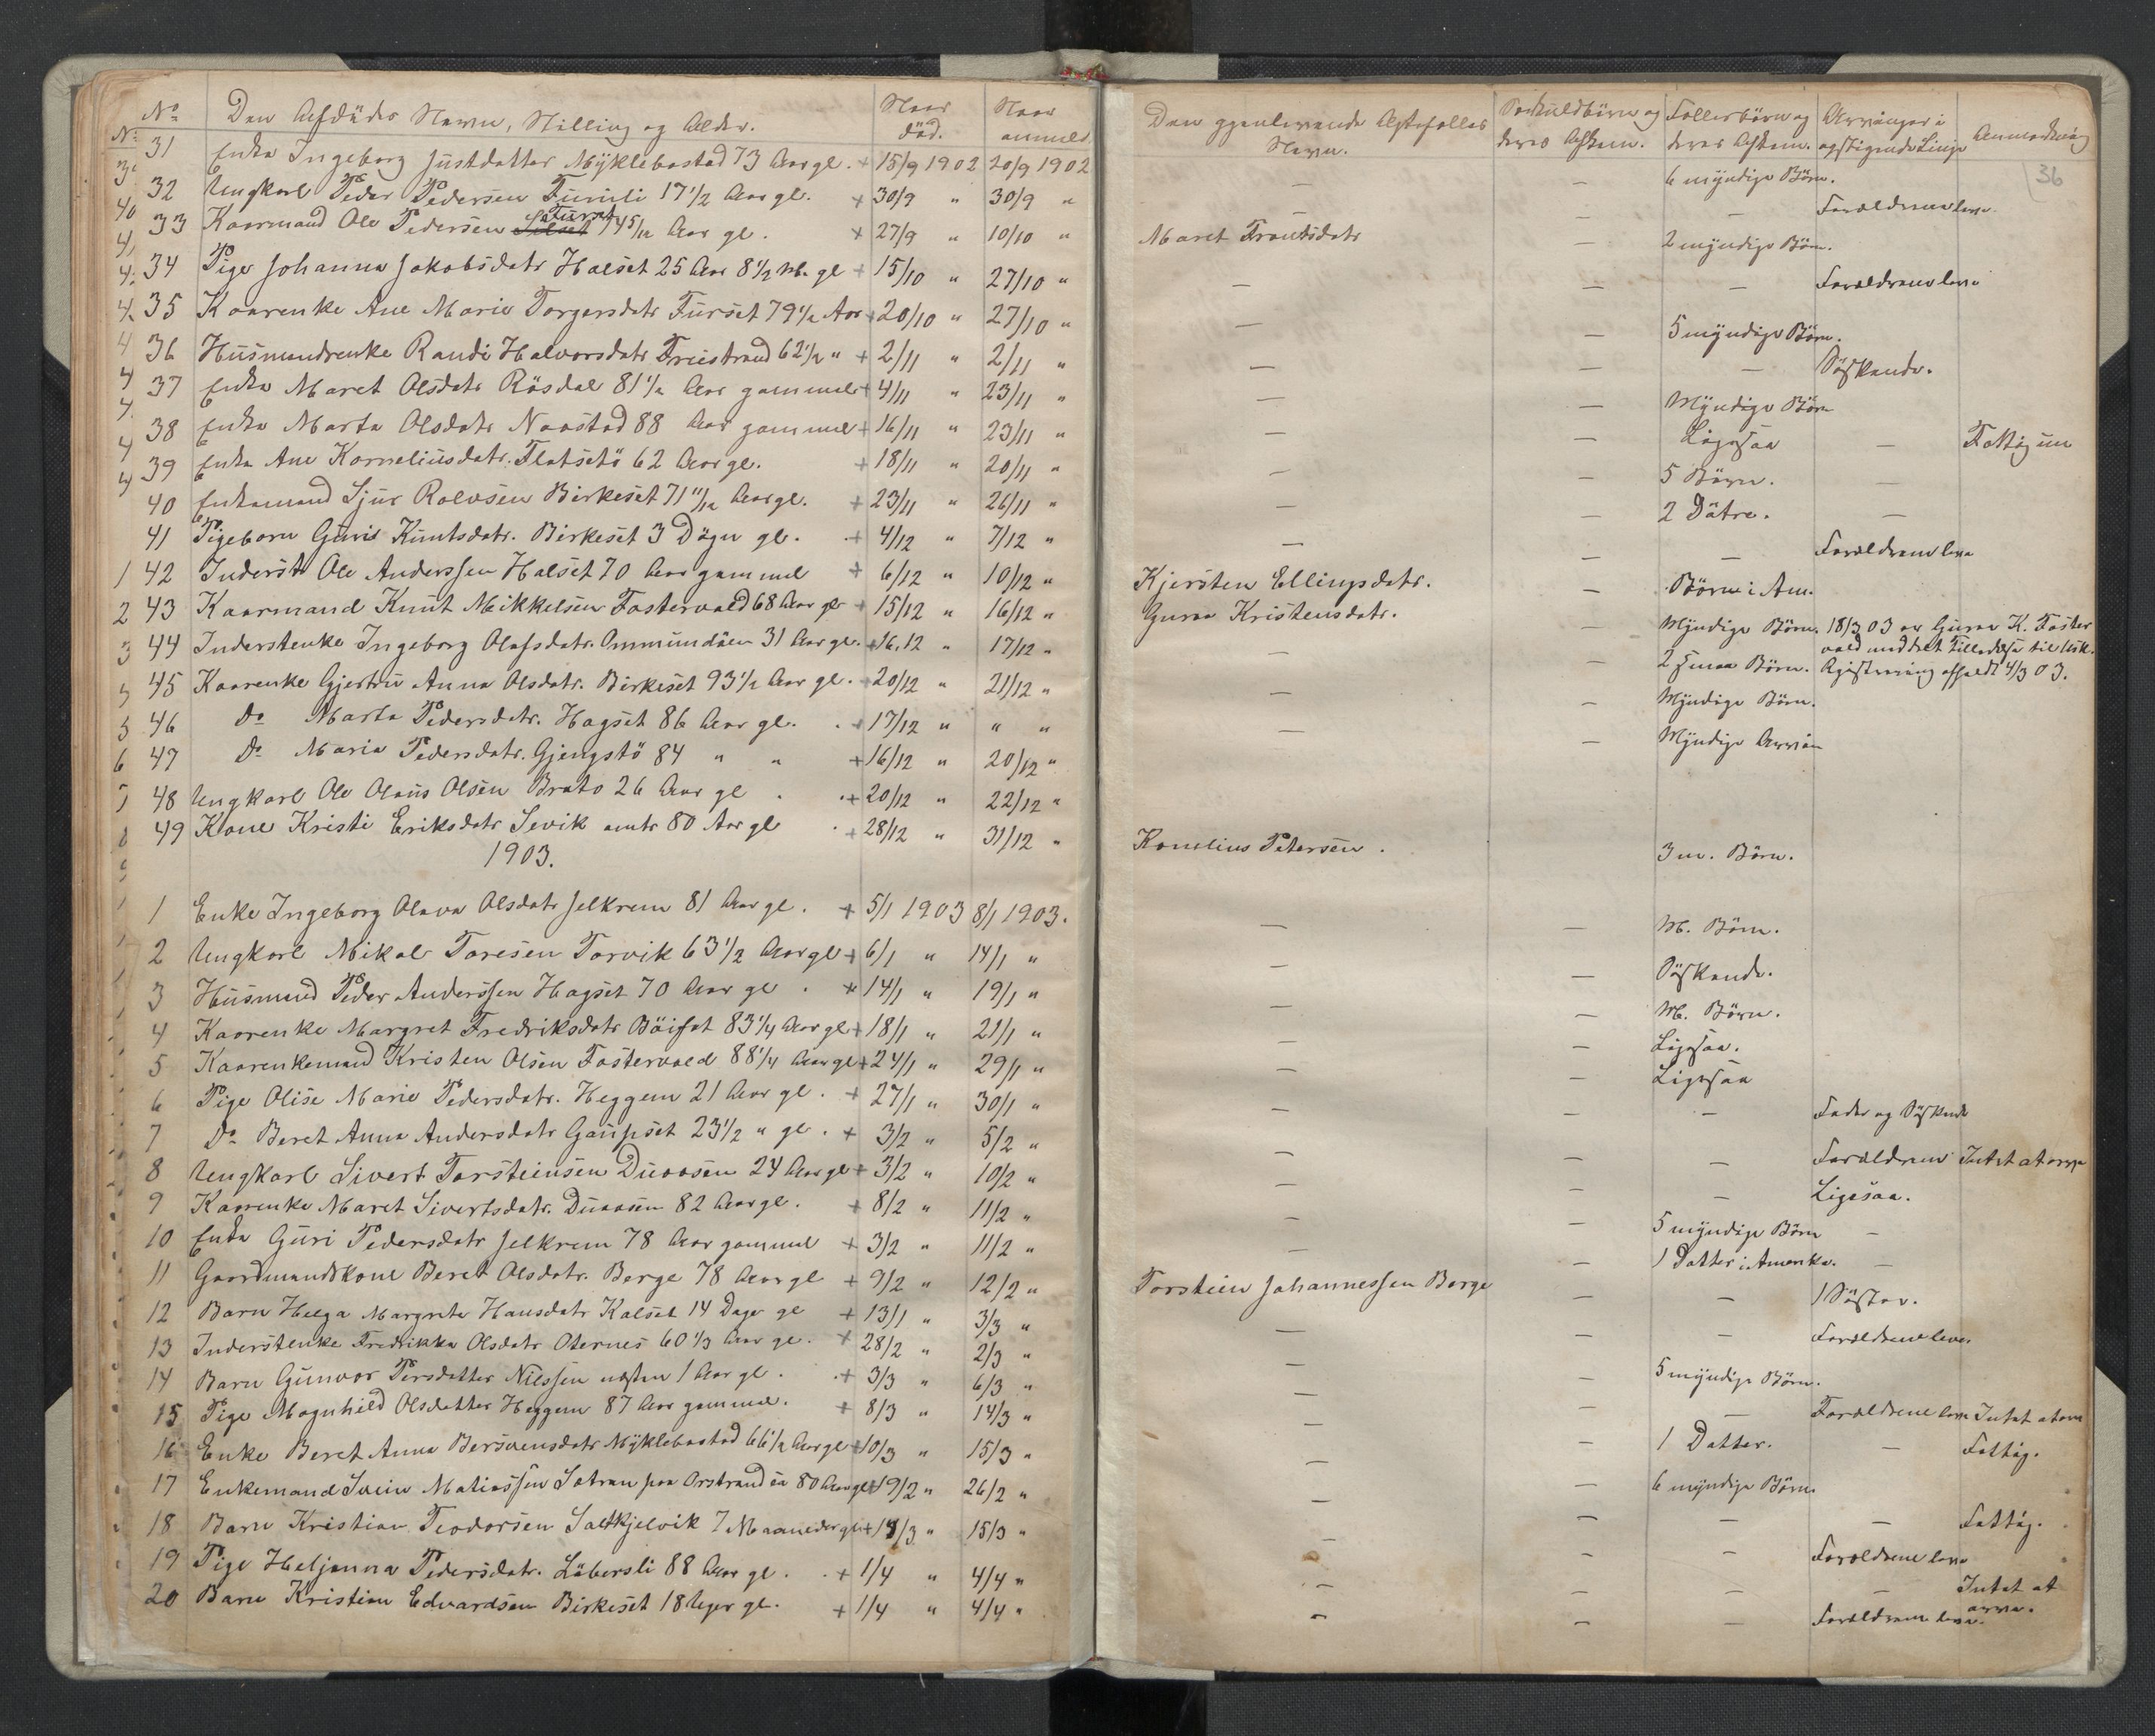 No Den Afdødes Navn, Stilling og Alder. Naar død. Naar anmeldt
31 Enke Ingeborg Justdatter Myklebostad 73 Aar gl. + 15/9 1902 20/9 1902
32 Ungkarl Peder Pedersen Furuli 17 1/2 Aar gl. + 30/9 " 30/9 "
33 Kaarmand Ole Pedersen Furset 74 5/12 Aar gl. + 27/9 " 10/10 "
34 Pige Johanna Jakobsdatr Halset 25 Aar 8 1/2 M. gl + 15/10 " 27/10 "
35 Kaarenke Ane Marie Torgersdatr Furset 79 1/2 Aar + 20/10 " 27/10 "
36 Husmandsenke Randi Halvorsdatr Trustrand 62 1/2 " + 2/11 " 2/11 "
37 Enke Maret Olsdatr Rösdal 81 1/2 Aar gammel + 4/11 " 23/11 "
38 Enke Marta Olsdatr Naastad 88 Aar gammel + 16/11 " 23/11 "
39 Enke Ane Korneliusdatr. Flatsetö 62 Aar gl. + 18/11 " 20/11 "
40 Enkemand Sjur Rolvsen Birkeset 71 11/12 Aar gl. + 23/11 " 26/11 "
41 Pigebarn Guris Knutsdatr. Birkeset 3 Dögn gl. + 4/12 " 7/12 "
42 Inderst Ole Anderssen Halset 70 Aar gammel + 6/12 " 10/12 "
43 Kaarmand Knut Mikkelsen Fostervold 68 Aar gl + 15/12 " 16/12 "
44 Inderstenke Ingeborg Olafsdatr. Ommundöen 31 Aar gl. + 16.12 " 17/12 "
45 Kaarenke Gjertru Anna Olsdatr. Birkeset 93 1/2 Aar gl. + 20/12 " 21/12 "
46 Do Marta Pedersdatr. Hagset 86 Aar gl. + 17/12 " " "
47 Do Maria Pedersdatr. Gjengstö 84 " " + 16/12 " 20/12 "
48 Ungkarl Ole Olaus Olsen Brato 26 Aar gl . + 20/12 " 22/12 "
49 Kone Kristi Eriksdatr Sevik omtr 80 Aar gl . + 28/12 " 31/12 "
1903.
1 Enke Ingeborg Olava Olsdatr Jelkrem 81 Aar gl. + 5/1 1903 8/1 1903.
2 Ungkarl Mikal Toresen Torvik 63 1/2 Aar gl + 6/1 " 14/1 "
3 Husmand Peder Anderssen Hagset 70 Aar gl . + 14/1 " 19/1 "
4 Kaarenke Margret Fredriksdatr Böifot 83 1/4 Aar gl + 18/1 " 21/1 "
5 Kaarenkemand Kristen Olsen Fostervold 88 1/4 Aar gl + 24/1 " 29/1 "
6 Pige Olise Marie Pedersdatr. Heggem 21 Aar gl. + 27/1 " 30/1 "
7 Do Beret Anna Andersdatr Gaupset 23 1/2 " gl. + 3/2 " 5/2 "
8 Ungkarl Sivert Torsteinsen Duaasen 24 Aar gl + 3/2 " 10/2 "
9 Kaarenke Maret Sivertsdatr. Duaasen 82 Aar gl. + 8/2 " 11/2 "
10 Enke Guri Pedersdatr Jelkrem 78 Aar gammel + 3/2 " 11/2 "
11 Gaardmandskone Beret Olsdatr. Berge 78 Aar gl + 9/2 " 12/2 "
12 Barn Helga Margrete Hansdatr Kalset 14 Dage gl + 13/1 " 3/3 "
13 Inderstenke Fredrikka Olsdatr Oternes 60 1/3 Aar gl. + 28/2 " 2/3 "
14 Barn Gunvor Persdatter Nilssen næsten 1 Aar gl. + 3/3 " 6/3 "
15 Pige Magnhild Olsdatter Heggem 87 Aar gammel. + 8/3 " 14/3 "
16 Enke Beret Anna Bersvensdatr Myklebostad 66 1/2 Aar gl + 10/3 " 15/3 "
17 Enkemand Svein Matiassen Sætran paa Orstranden 80 Aar gl + 19/2 " 26/2 "
18 Barn Kristian Teodorsen Saltkjelvik 7 Maaneder gl + 15/3 " 15/3 "
19 Pige Heljanna Pedersdatr. Löbersli 88 Aar gl. + 1/4 " 4/4 "
20 Barn Kristian Edvardsen Birkeset 18 Uger gl. + 1/4 " 4/4 "
Den gjenlevende Ægtefælles Navn. Særkuldbörn og deres Afkom. Fællesbörn og deres Afkom. Arvinger i opstigende Linje Anmærkning
36
— — 6 myndige Börn.
— — Forældrene leve
Maret Trontsdatr — 2 myndige Börn.
— — — Forældrene leve
— — 5 myndige Börn.
— — — Söskende.
— — Myndige Börn
— — Ligesaa — Fattig
— — 5 Börn. —
— — 2 Dötre. —
— — — Forældrene leve
Kjersten Ellingsdatr. — Börn i Am.
Guraa Kristensdatr. — Myndige Börn. 18/3 03 er Guraa K. Foster
vold meddelt Tilladelse til Usk.
— — 2 smaa Börn. Registrering afholdt 4/3 03.
— — Myndige Börn.
— — Myndige
Kornelius Petersen. 3 m. Börn.
— — M. Börn.
— — Söskende.
— — M. Börn.
— — Ligesaa.
— — Ligesaa
— — — Fader og Söskende
— — — Forældrene Intet at arve
— — — Ligesaa.
— — 5 myndige Börn —
— — 1 Datter i Amerika. —
Torstein Johannessen Berge — — 1 Söster.
— — — Forældrene lever
— — 5 myndige Börn.
— — — Forældrene leve Intet at arve
— — 1 Datter. — Fattig.
— — 6 myndige Börn
— — — — Fattig.
— — — Forældrene leve
— — — — Intet at
arve.
— — — Forældrene leve.